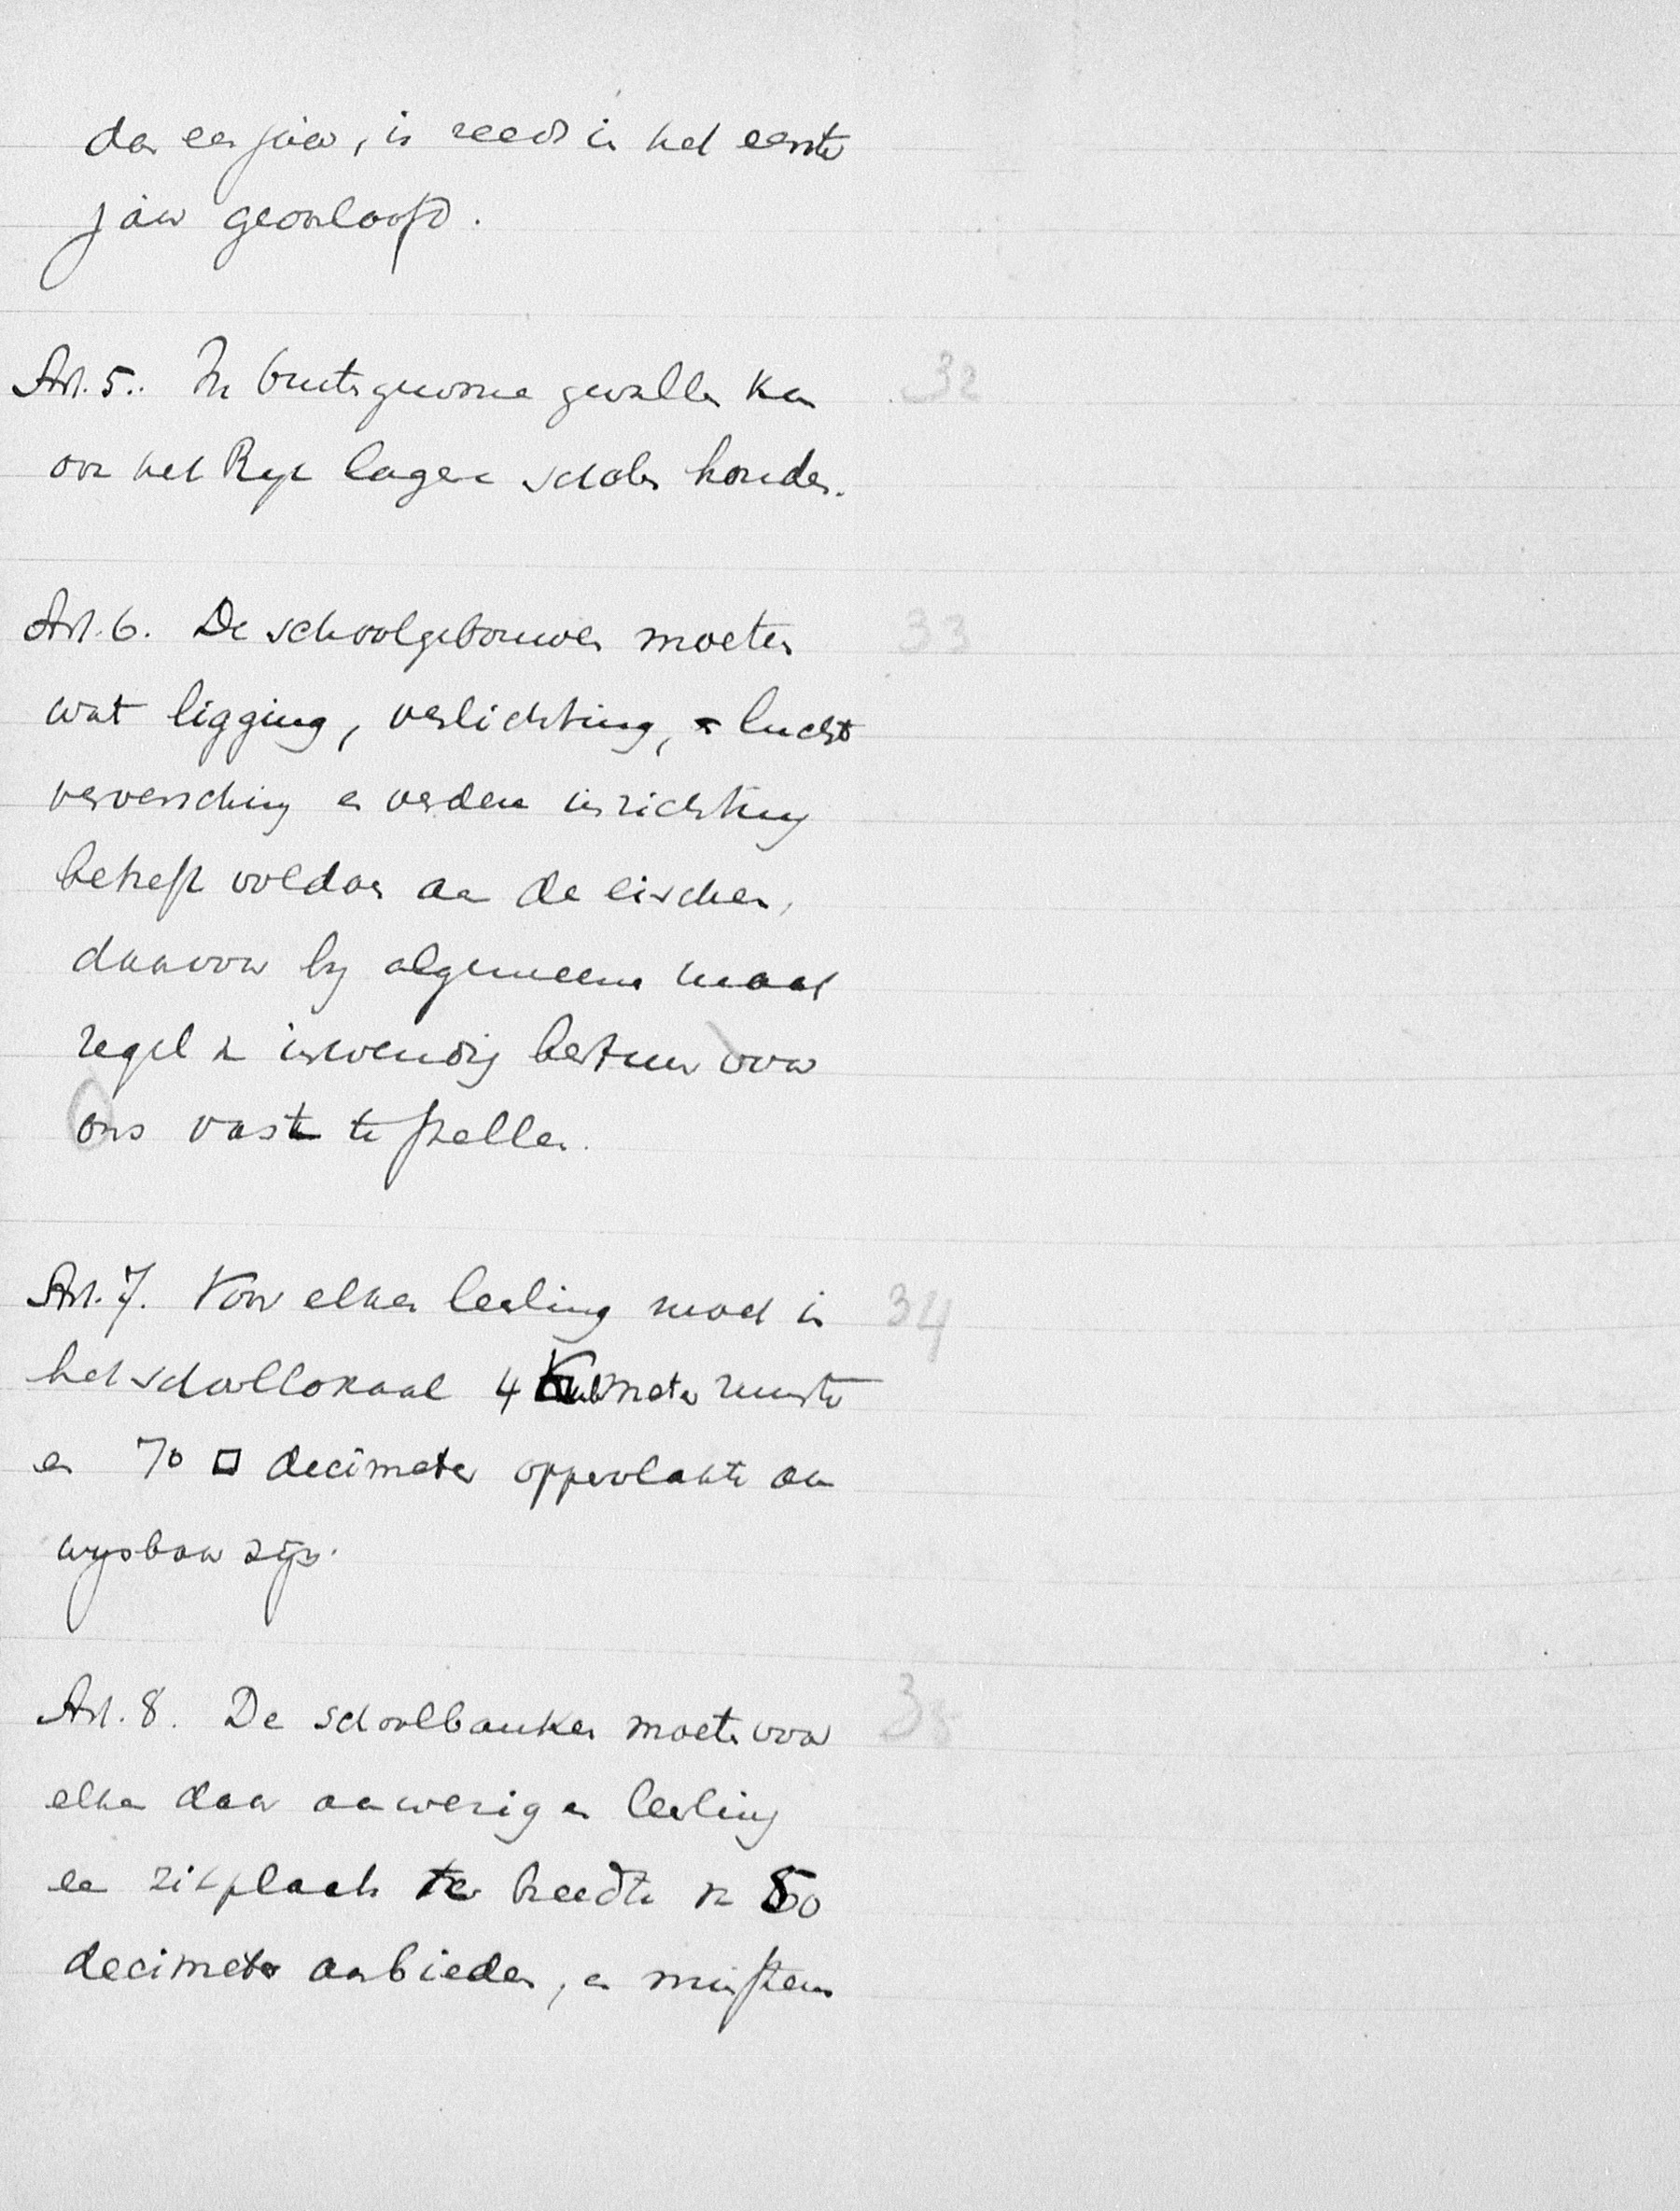 dan een jaar, is reeds in het eerste
jaar geoorloofd.
Art. 5. In buitengewone gevallen kan 32
ook het Rijk lagere scholen houden.
Art. 6. De schoolgebouwen moeten 33
wat ligging, verlichting, lucht
verversching en verdere inrichting
betreft voldoen aan de eischen,
daarvoor bij algemeene maat
regel v. inwendig bestuur door
ons vast te stellen.
Art. 7. Voor elken leerling moet in 34
het schoollokaal 4 Kub meter ruimte
en 70 □ decimeter oppervlakte aan
wijsbaar zijn.
Art. 8. De schoolbanken moeten voor 35
elken daar aanwezigen leerling
een zitplaats ter breedte v 50
decimeter aanbieden, en minstens